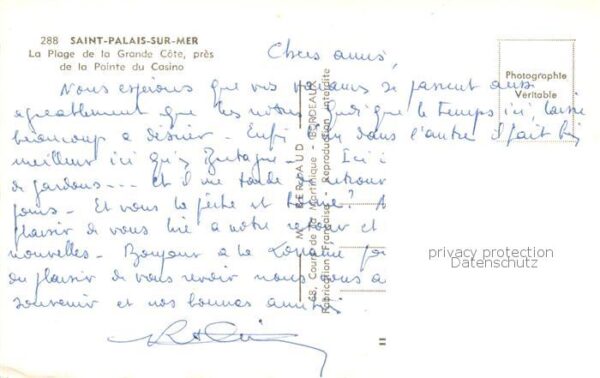 288 SAINT-PALAIS-SUR-MER
La Plage de la Grande Côte, près
de la Pointe du Casino
Chers amis,
Photographie
Véritable
Nous espérons que vos vacances se passent aussi
agréablement que les nôtres quoique le temps ici, laisse
beaucoup à désirer - Enfin dans l'autre il fait
meilleur ici qu'en Bretagne - Ici
de gardons... et il me tarde de retrouver
Et vous la pêche et A
plaisir de vous lire à notre retour et
nouvelles - Bonjour à la
du plaisir de vous revoir nous vous a
souvenir et nos bonnes amitiés
BERJAUD
68, Cours de la Martinique - BORDEAUX
Fabrication Française - Reproduction interdite
privacy protection
Datenschutz